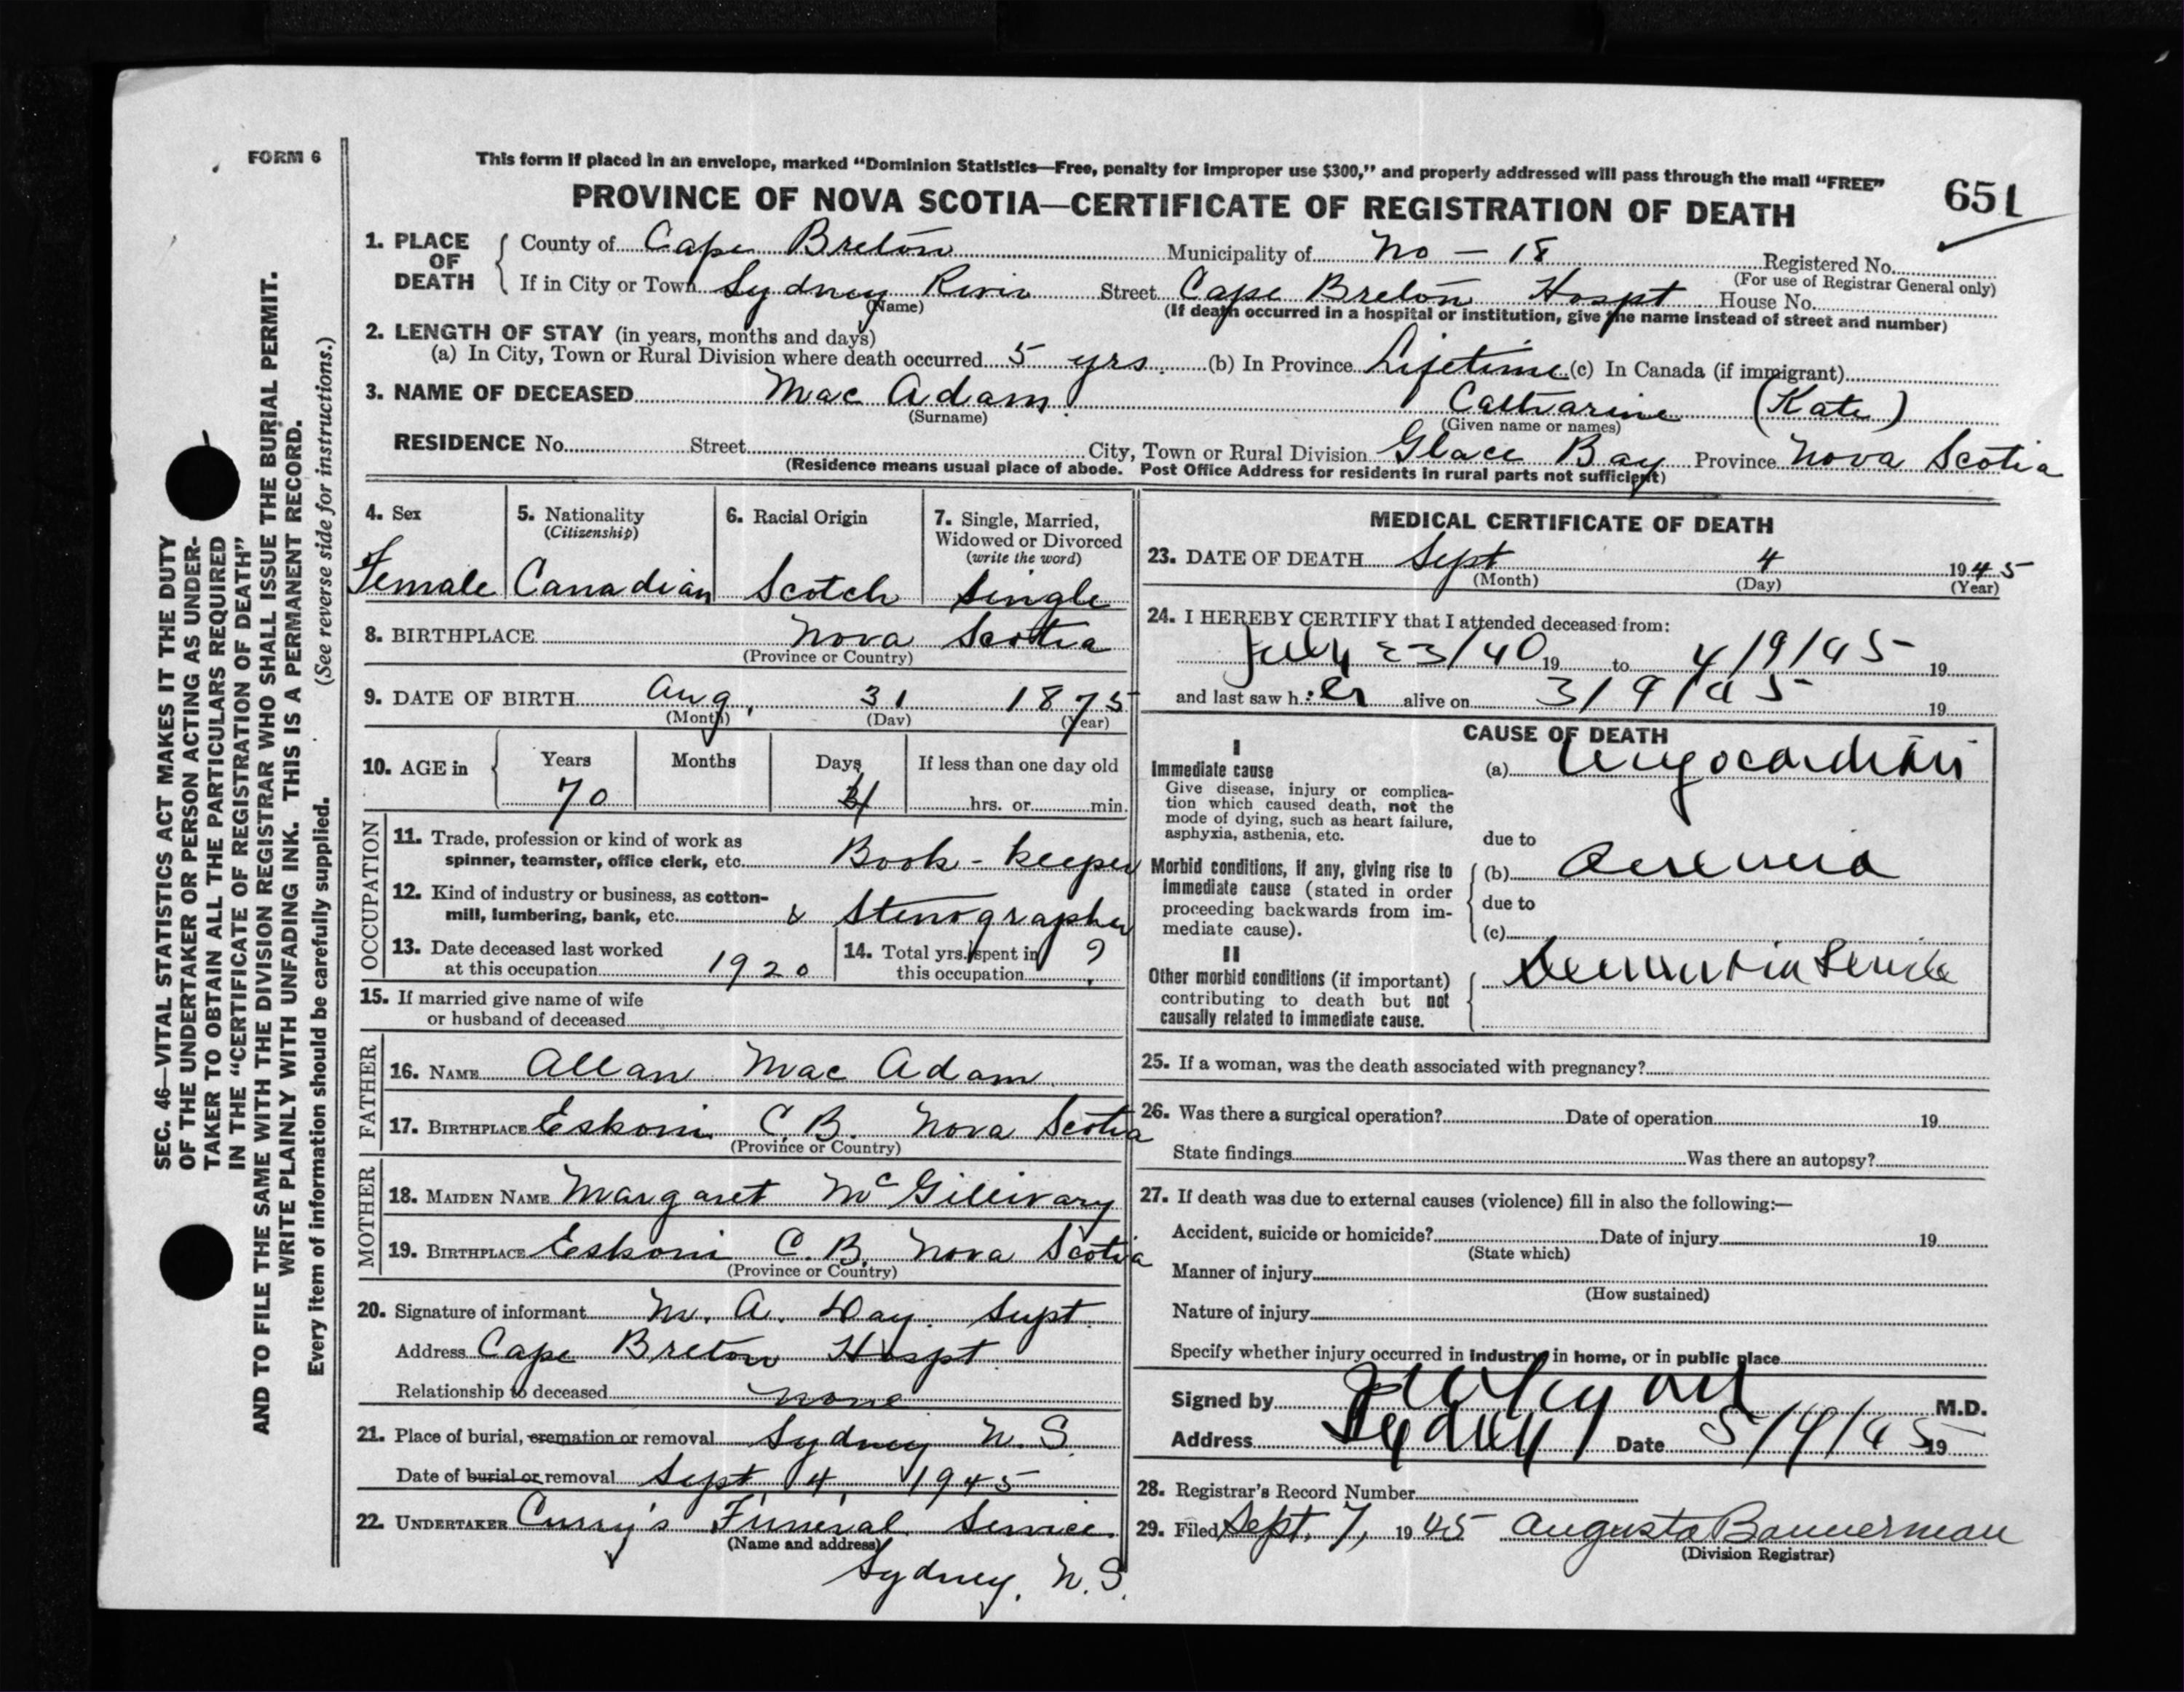 FORM 6
This form if placed in an envelope, marked “Dominion Statistics—Free, penalty for improper use $300,” and properly addressed will pass through the mail “FREE”
PROVINCE OF NOVA SCOTIA—CERTIFICATE OF REGISTRATION OF DEATH
651
1. PLACE OF DEATH
County of Cape Breton Municipality of No - 18 Registered No.
(For use of Registrar General only)
If in City or Town Sydney River Street Cape Breton Hospt House No.
(Name) (If death occurred in a hospital or institution, give the name instead of street and number)
2. LENGTH OF STAY (in years, months and days)
(a) In City, Town or Rural Division where death occurred 5 yrs. (b) In Province Lifetime (c) In Canada (if immigrant)
3. NAME OF DECEASED Mac Adam Catharine (Kate)
(Surname) (Given name or names)
RESIDENCE No. Street City, Town or Rural Division Glace Bay Province Nova Scotia
(Residence means usual place of abode. Post Office Address for residents in rural parts not sufficient)
4. Sex
Female
5. Nationality
(Citizenship)
Canadian
6. Racial Origin
Scotch
7. Single, Married,
Widowed or Divorced
(write the word)
Single
8. BIRTHPLACE Nova Scotia
(Province or Country)
9. DATE OF BIRTH Aug. 31 1875
(Month) (Day) (Year)
10. AGE in
Years Months Days If less than one day old
70 4 hrs. or min.
OCCUPATION
11. Trade, profession or kind of work as
spinner, teamster, office clerk, etc. Book-keeper
12. Kind of industry or business, as cotton-
mill, lumbering, bank, etc. & Stenographer
13. Date deceased last worked
at this occupation 1920
14. Total yrs. spent in
this occupation ?
15. If married give name of wife
or husband of deceased
FATHER
16. NAME Allan Mac Adam
17. BIRTHPLACE Eskoni C.B. Nova Scotia
(Province or Country)
MOTHER
18. MAIDEN NAME Margaret McGillivary
19. BIRTHPLACE Eskoni C.B. Nova Scotia
(Province or Country)
20. Signature of informant M. A. Day. Supt.
Address Cape Breton Hospt.
Relationship to deceased none
21. Place of burial, cremation or removal Sydney N.S.
Date of burial or removal Sept 4, 1945
22. UNDERTAKER Curry's Funeral Service
(Name and address)
Sydney, N.S.
MEDICAL CERTIFICATE OF DEATH
23. DATE OF DEATH Sept 4 1945
(Month) (Day) (Year)
24. I HEREBY CERTIFY that I attended deceased from:
July 23/40 19 to 4/9/45 19
and last saw h er alive on 3/9/45 19
CAUSE OF DEATH
I
Immediate cause
Give disease, injury or complica-
tion which caused death, not the
mode of dying, such as heart failure,
asphyxia, asthenia, etc.
(a) Myocarditis
due to
Morbid conditions, if any, giving rise to
immediate cause (stated in order
proceeding backwards from im-
mediate cause).
(b)
due to
(c)
II
Other morbid conditions (if important)
contributing to death but not
causally related to immediate cause.
Dementia Senile
25. If a woman, was the death associated with pregnancy?
26. Was there a surgical operation? Date of operation 19
State findings Was there an autopsy?
27. If death was due to external causes (violence) fill in also the following:—
Accident, suicide or homicide? Date of injury 19
(State which)
Manner of injury
(How sustained)
Nature of injury
Specify whether injury occurred in industry, in home, or in public place
Signed by M.D.
Address Sydney Date 5/9/45 19
28. Registrar's Record Number
29. Filed Sept. 7, 1945 Augusta Bannerman
(Division Registrar)
SEC. 46—VITAL STATISTICS ACT MAKES IT THE DUTY
OF THE UNDERTAKER OR PERSON ACTING AS UNDER-
TAKER TO OBTAIN ALL THE PARTICULARS REQUIRED
IN THE “CERTIFICATE OF REGISTRATION OF DEATH”
AND TO FILE THE SAME WITH THE DIVISION REGISTRAR WHO SHALL ISSUE THE BURIAL PERMIT.
WRITE PLAINLY WITH UNFADING INK. THIS IS A PERMANENT RECORD.
Every item of information should be carefully supplied. (See reverse side for instructions.)